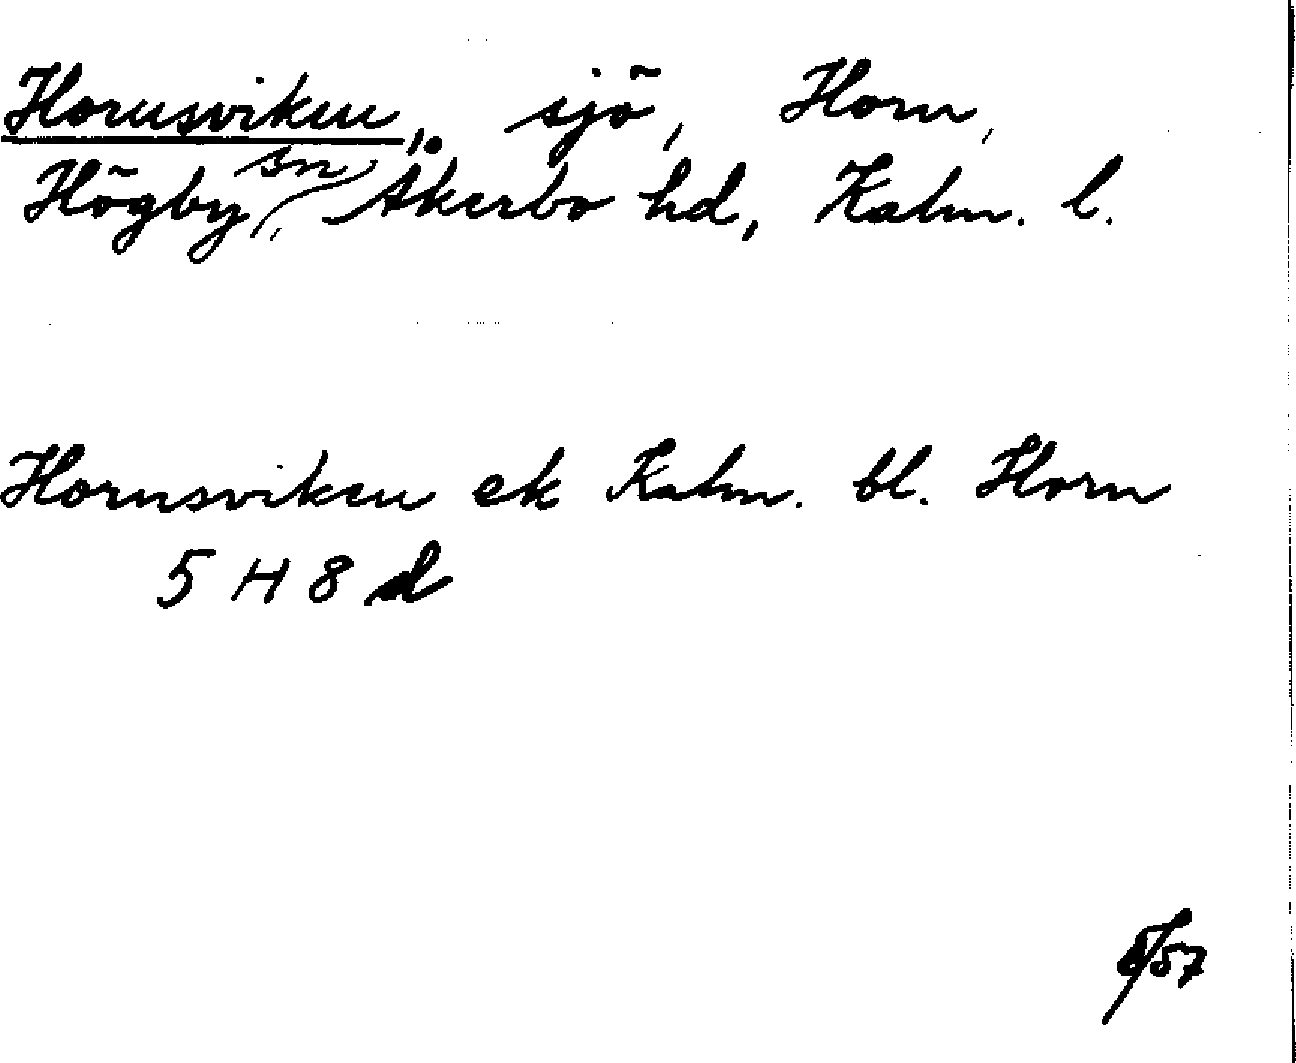 Hornsviken, sjö, Horn,
Högby sn, Åkerbo hd, Kalm. l.
Hornsviken ek Kalm. bl. Horn
5 H 8 d